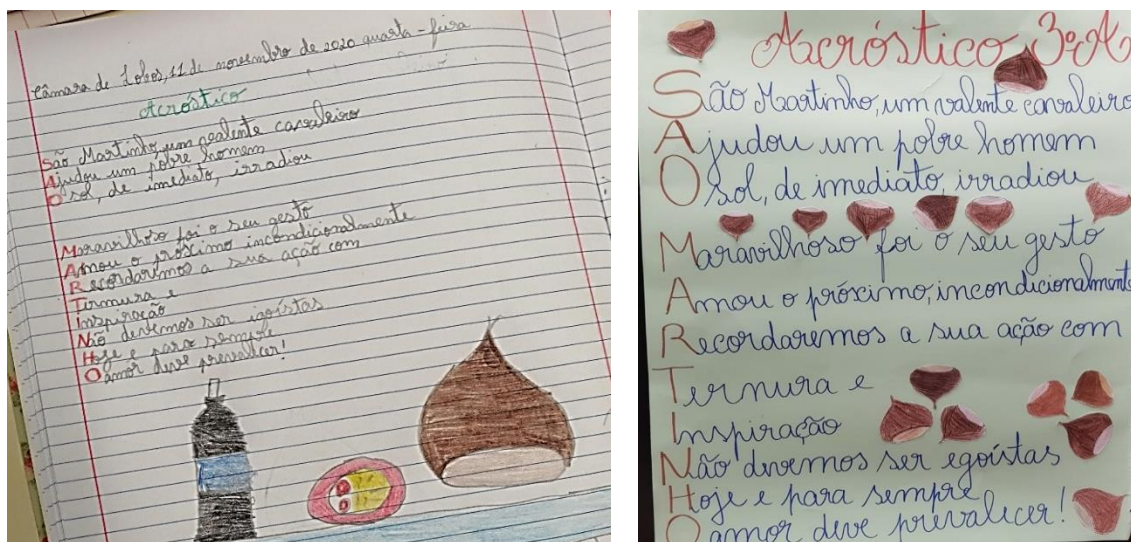 Câmara de Lobos, 11 de novembro de 2020 quarta-feira
Acróstico
São Martinho, um valente cavaleiro
Ajudou um pobre homem
O sol, de imediato, irradiou
Maravilhoso foi o seu gesto
Amou o próximo incondicionalmente
Recordaremos a sua ação com
Ternura e
Inspiração
Não devemos ser igoístas
Hoje e para sempre
O amor deve prevalicer!
Acróstico 3ºA
São Martinho, um valente cavaleiro
Ajudou um pobre homem
O sol, de imediato, irradiou
Maravilhoso foi o seu gesto
Amou o próximo, incondicionalmente
Recordaremos a sua ação com
Ternura e
Inspiração
Não devemos ser egoístas
Hoje e para sempre
O amor deve prevalecer!